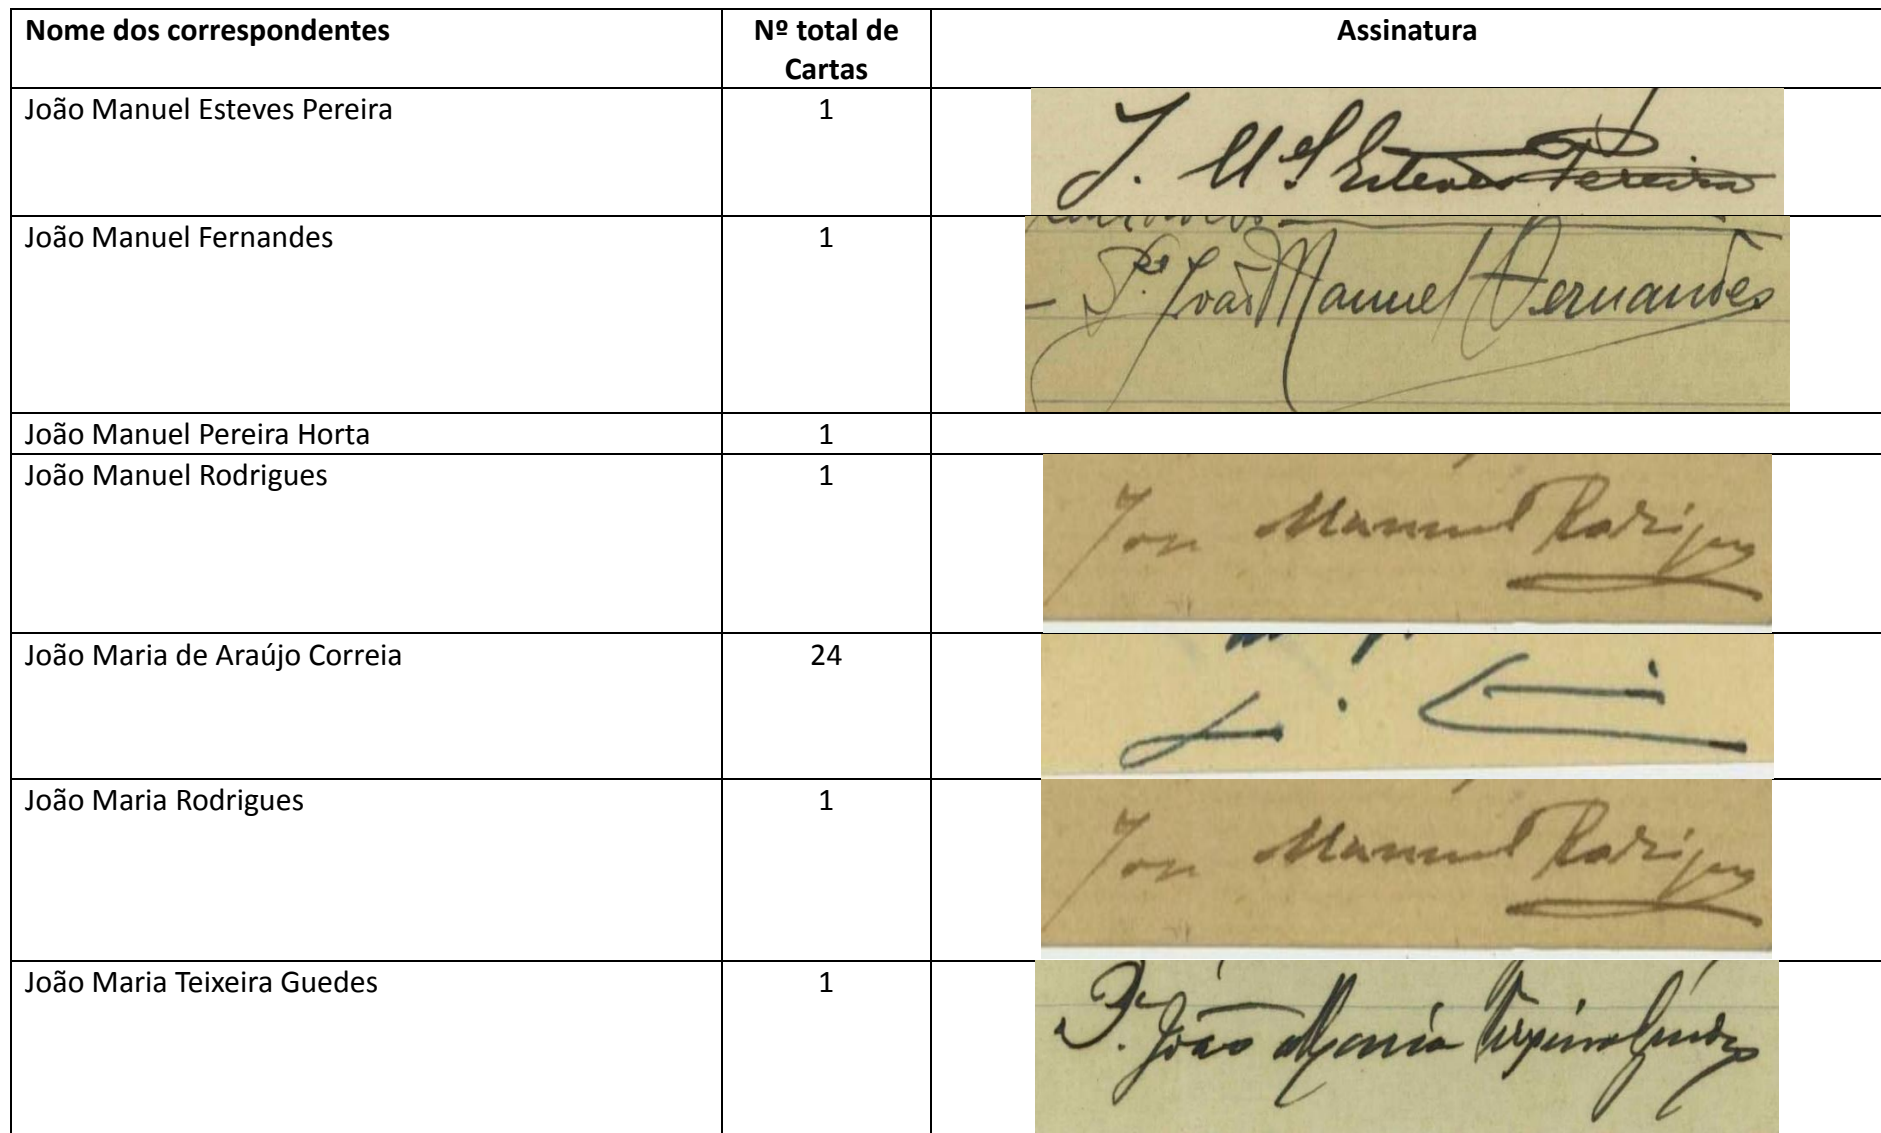 Nome dos correspondentes
Nº total de
Cartas
Assinatura
João Manuel Esteves Pereira
1
J. M.el Esteves Pereira
João Manuel Fernandes
1
P.e João Manuel Fernandes
João Manuel Pereira Horta
1
João Manuel Rodrigues
1
Manuel Rodrigues
João Maria de Araújo Correia
24
João Maria Rodrigues
1
Manuel Rodrigues
João Maria Teixeira Guedes
1
P.e João Maria Teixeira Guedes